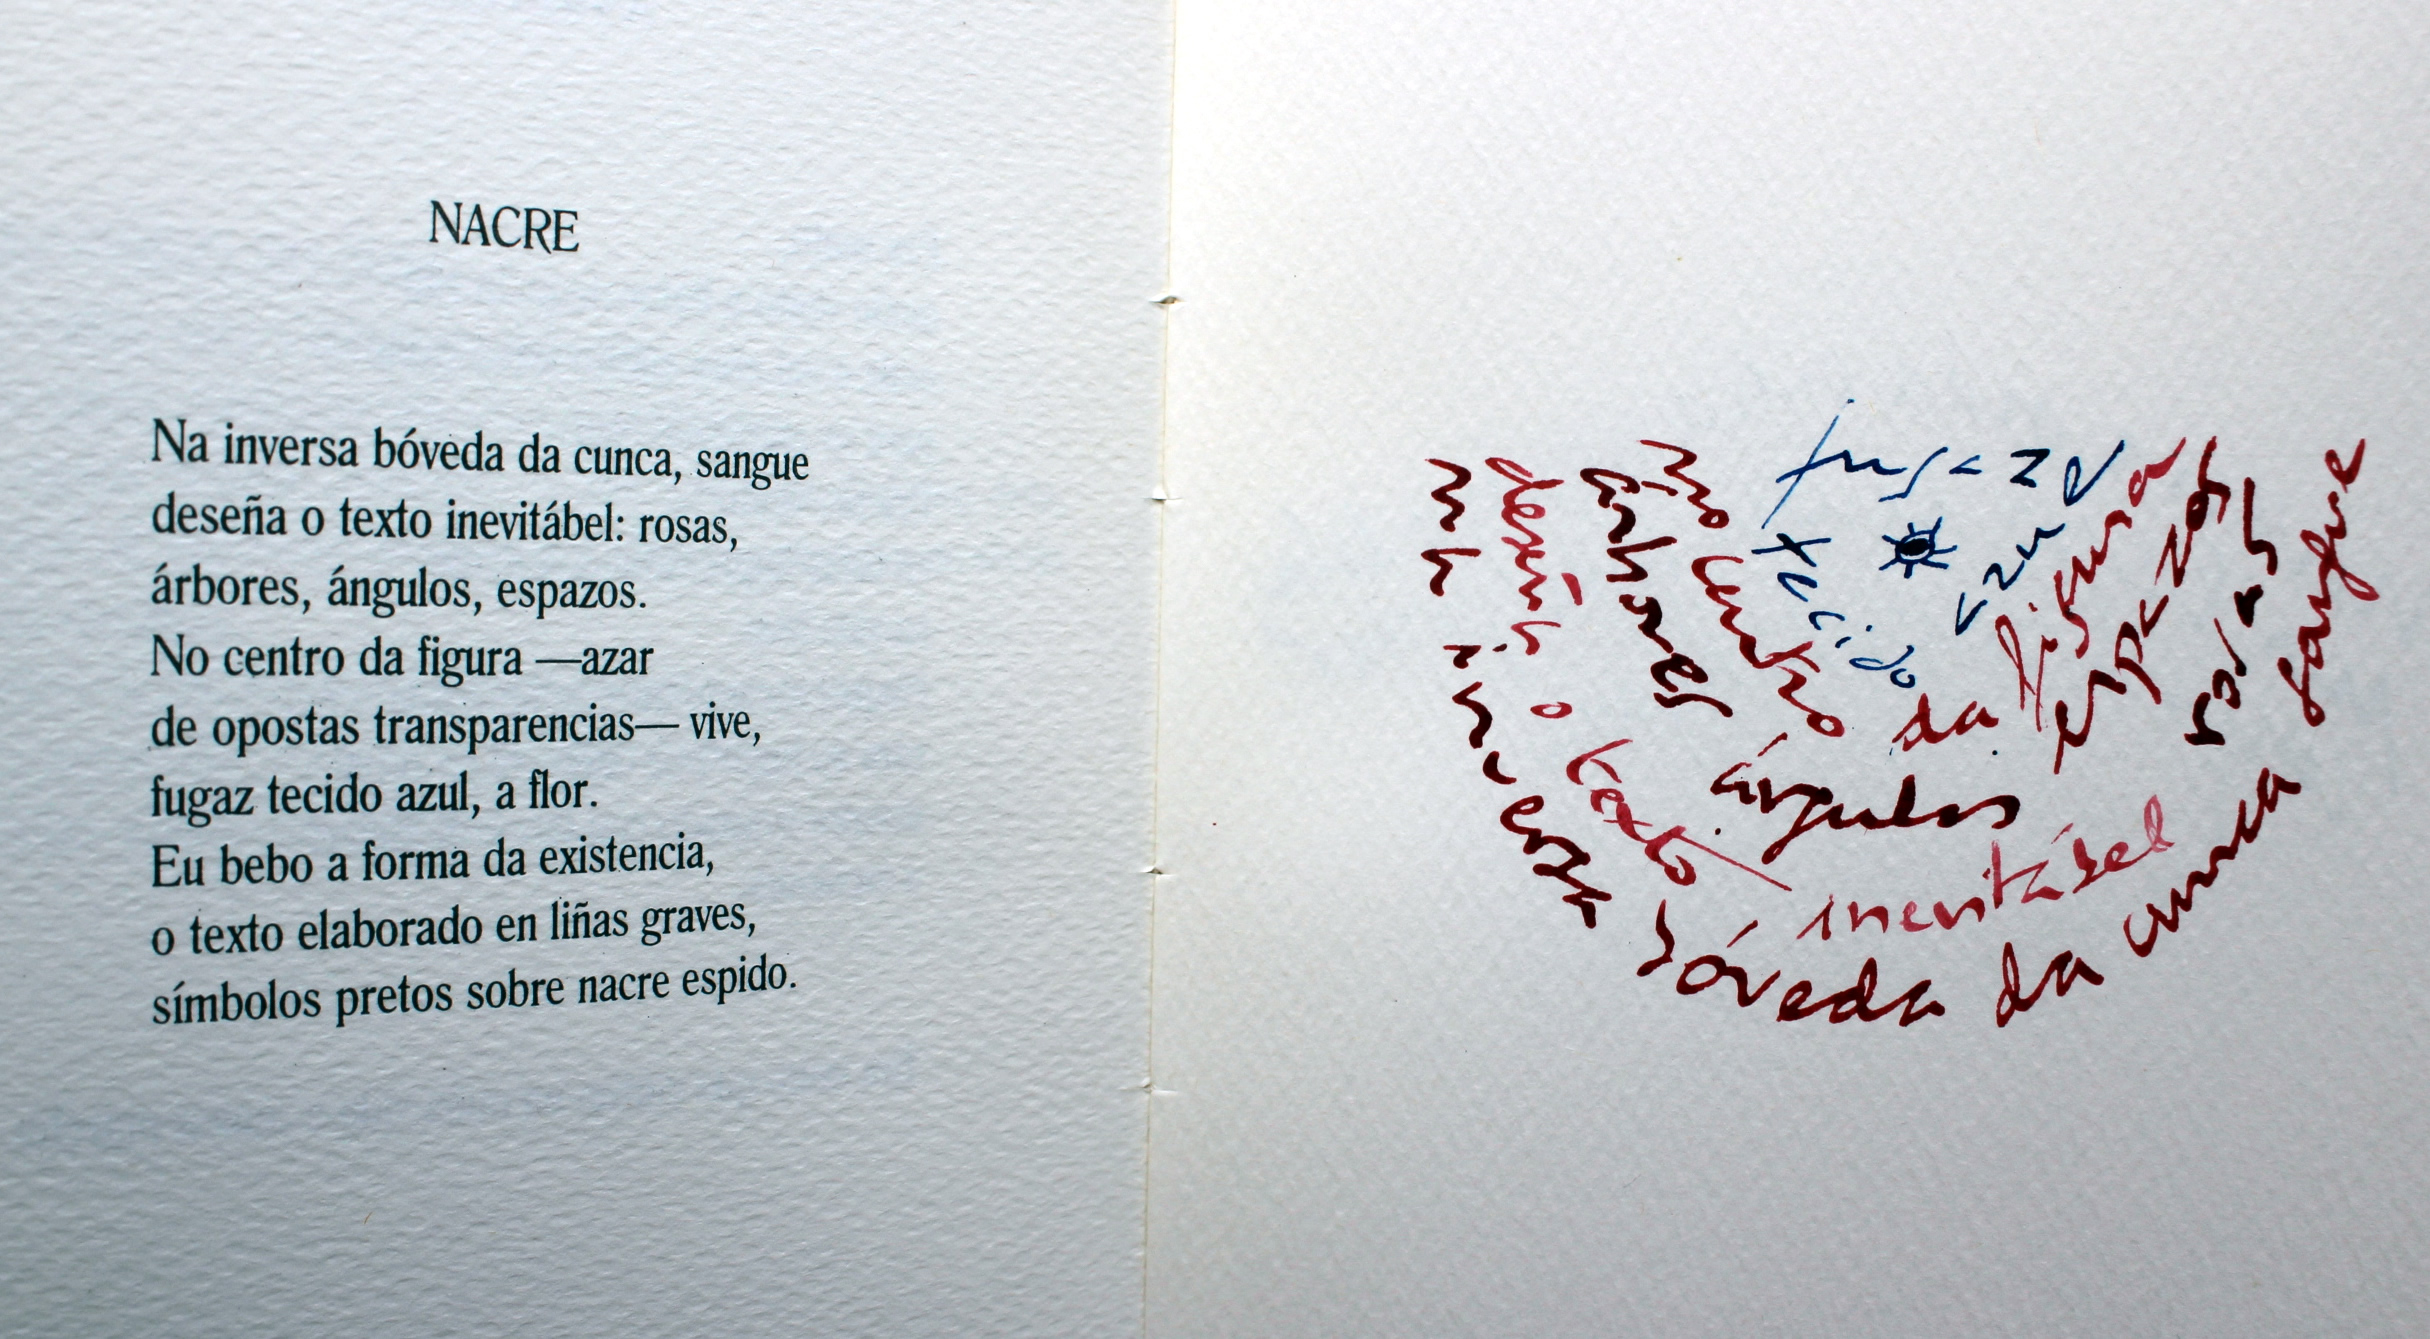 NACRE
Na inversa bóveda da cunca, sangue
deseña o texto inevitábel: rosas,
árbores, ángulos, espazos.
No centro da figura —azar
de opostas transparencias— vive,
fugaz tecido azul, a flor.
Eu bebo a forma da existencia,
o texto elaborado en liñas graves,
símbolos pretos sobre nacre espido.
na inversa bóveda da cunca sangue
deseña o texto inevitábel rosas
árbores ángulos espazos
no centro da figura
fugaz
tecido
azul